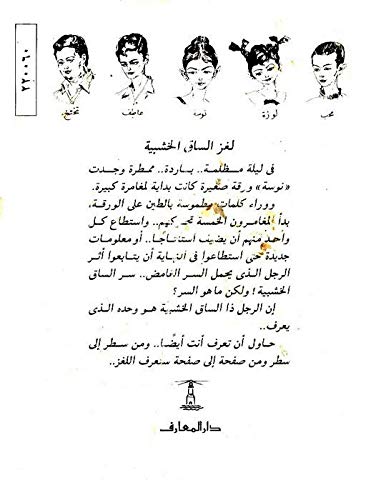 ٢٢٠٠٦٠
تختخ عاطف نوسة لوزة محب
لغز الساق الخشبية
فى ليلة مظلمة .. باردة .. ممطرة وجدت
«نوسة» ورقة صغيرة كانت بداية لمغامرة كبيرة .
ووراء كلمات مطموسة بالطين على الورقة،
بدأ المغامرون الخمسة تحركهم .. واستطاع كل
واحد منهم أن يضيف استنتاجًا .. أو معلومات
جديدة حتى استطاعوا فى النهاية أن يتابعوا أثر
الرجل الذى يحمل السر الغامض .. سر الساق
الخشبية ! ولكن ما هو السر ؟
إن الرجل ذا الساق الخشبية هو وحده الذى
يعرف ..
حاول أن تعرف أنت أيضًا .. ومن سطر إلى
سطر ومن صفحة إلى صفحة ستعرف اللغز ..
دار المعارف